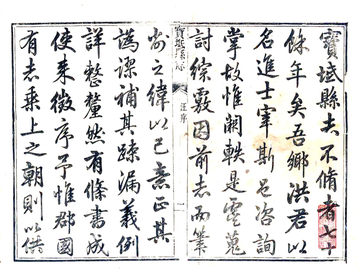 寶坻縣志不脩者七十
餘年矣吾鄉洪君以
名進士宰斯邑咨詢
掌故惟闕軼是虞蒐
討綜覈因前志而纂
寶坻縣志
汪序
之緯以已意正其
譌謬補其疎漏義例
詳整釐然有條書成
使来徵序予惟郡國
有志乘上之朝則以供